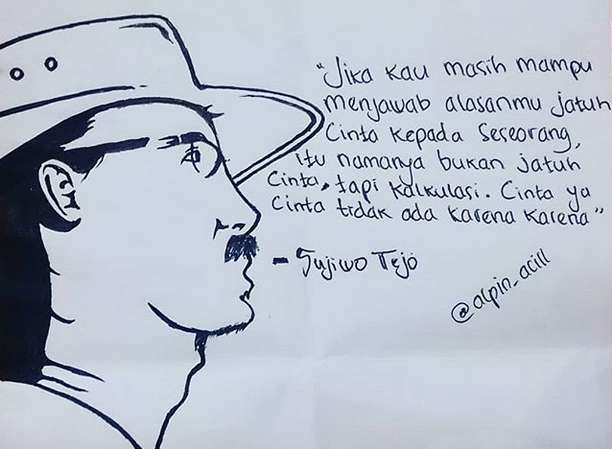 "Jika kau masih mampu
menjawab alasanmu jatuh
Cinta kepada Seseorang,
itu namanya bukan jatuh
Cinta, tapi kalkulasi. Cinta ya
Cinta tidak ada karena karena"
- Sujiwo Tejo
@alpin_acill